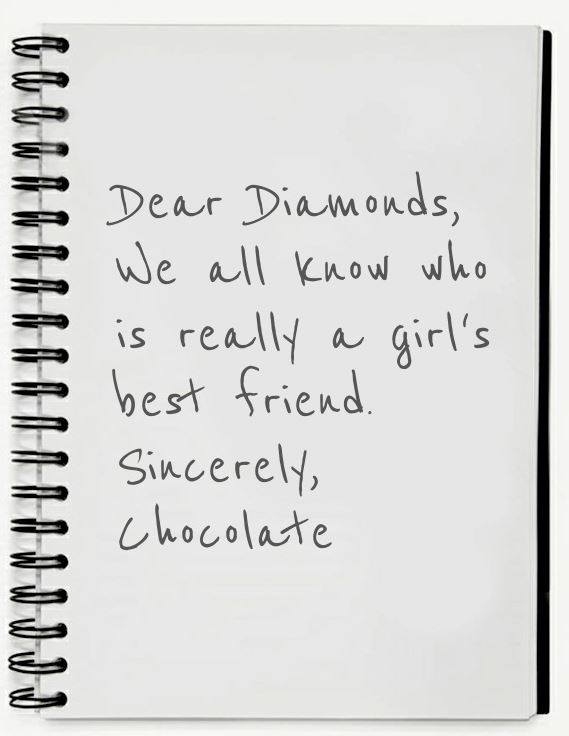 Dear Diamonds,
We all know who
is really a girl's
best friend.
Sincerely,
Chocolate